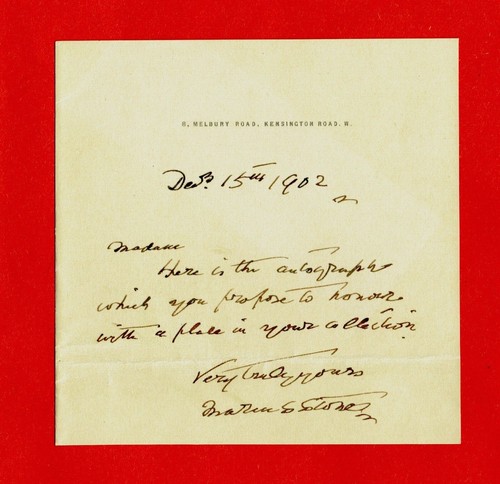 8, MELBURY ROAD, KENSINGTON ROAD. W.
Decr. 15th 1902
Madam
Here is the autograph
which you propose to honour
with a place in your collection
Very truly yours
Marcus Stone